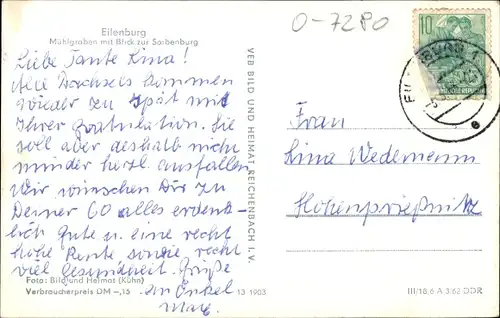 Eilenburg
Mühlgraben mit Blick zur Sorbenburg
Liebe Tante Lina!
Alle Wachsels kommen
wieder zu spät mit
Ihrer Gratulation. Sie
soll aber deshalb nicht
minder herzl. ausfallen
Wir wünschen Dir zu
Deiner 60 alles erdenk-
lich Gute u. eine recht
hohe Rente sowie recht
viel Gesundheit. Grüße
an Onkel
Max.
Foto: Bild und Heimat (Kühn)
Verbraucherpreis DM –,15
13 1903
VEB BILD UND HEIMAT REICHENBACH I. V.
O-7280
10
Frau
Lina Wedemann
Hohenprießnitz
III/18/6 A 3/62 DDR